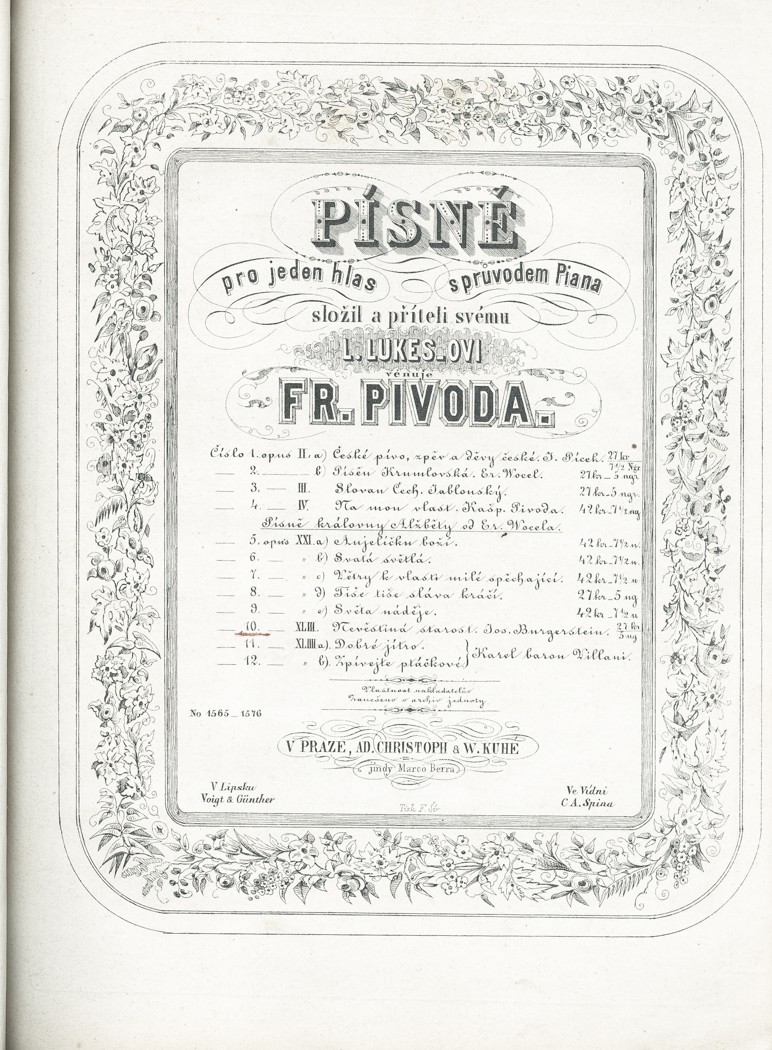 PÍSNÉ
pro jeden hlas s průvodem Piana
složil a příteli svému
L. LUKES_OVI
věnuje
FR. PIVODA.
Číslo 1. opus II. a) České pivo, zpěv a děvy české. J. Picek. 27 kr 7 1/2 Ngr
— 2. —— b) Písěn Krumlovská. Er. Wocel. 27 kr_5 ngr.
— 3. — III. Slovan Čech. Jablonský. 27 kr_5 ngr.
— 4. — IV. Na mou vlast. Kašp. Pivoda. 42 kr_7 1/2 ng
Písně královny Alžběty od Er. Wocela.
— 5. opus XXI. a) Anjelíčku boží. 42 kr_7 1/2 n.
— 6. — " b) Svatá světlá. 42 kr_7 1/2 n.
— 7. — " c) Větry k vlasti milé spěchající. 42 kr_7 1/2 n
— 8. — " d) Tiše tiše sláva kráčí. 27 kr_5 ng
— 9. — " e) Světa náděje. 42 kr_7 1/2 n
— 10. — XLIII. Nevěstina starost. Jos. Burgerstein. 27 kr 5 ng
— 11. — XLIIII a). Dobré jitro.
— 12. — " b). Zpívejte ptáčkové } Karol baron Villani.
Vlastnost nakladatelův
Zaneseno v archiv jednoty
No 1565_1576
V PRAZE, AD. CHRISTOPH & W. KUHÉ
jindy Marco Berra
V Lipsku Ve Vídni
Voigt & Günther C A. Spina